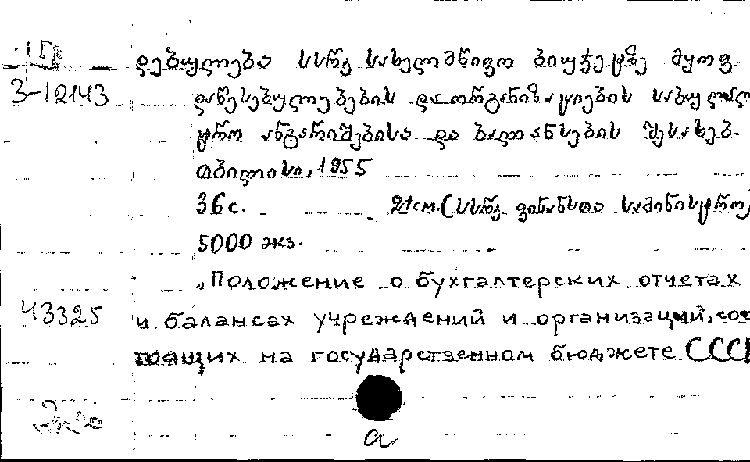 დებულება სსრკ სახელმწიფო ბიუჯეტზე მყოფ
3-12143
დაწესებულებების და ორგანიზაციების საბუღალ
ტრო ანგარიშებისა და ბალანსების შესახებ.
თბილისი, 1955
36 с. 21 см. (სსრკ ფინანსთა სამინისტრო)
5000 экз.
„Положение о бухгалтерских отчетах
43325
и балансах учреждений и организаций, сос
тоящих на государственном бюджете СССР
a